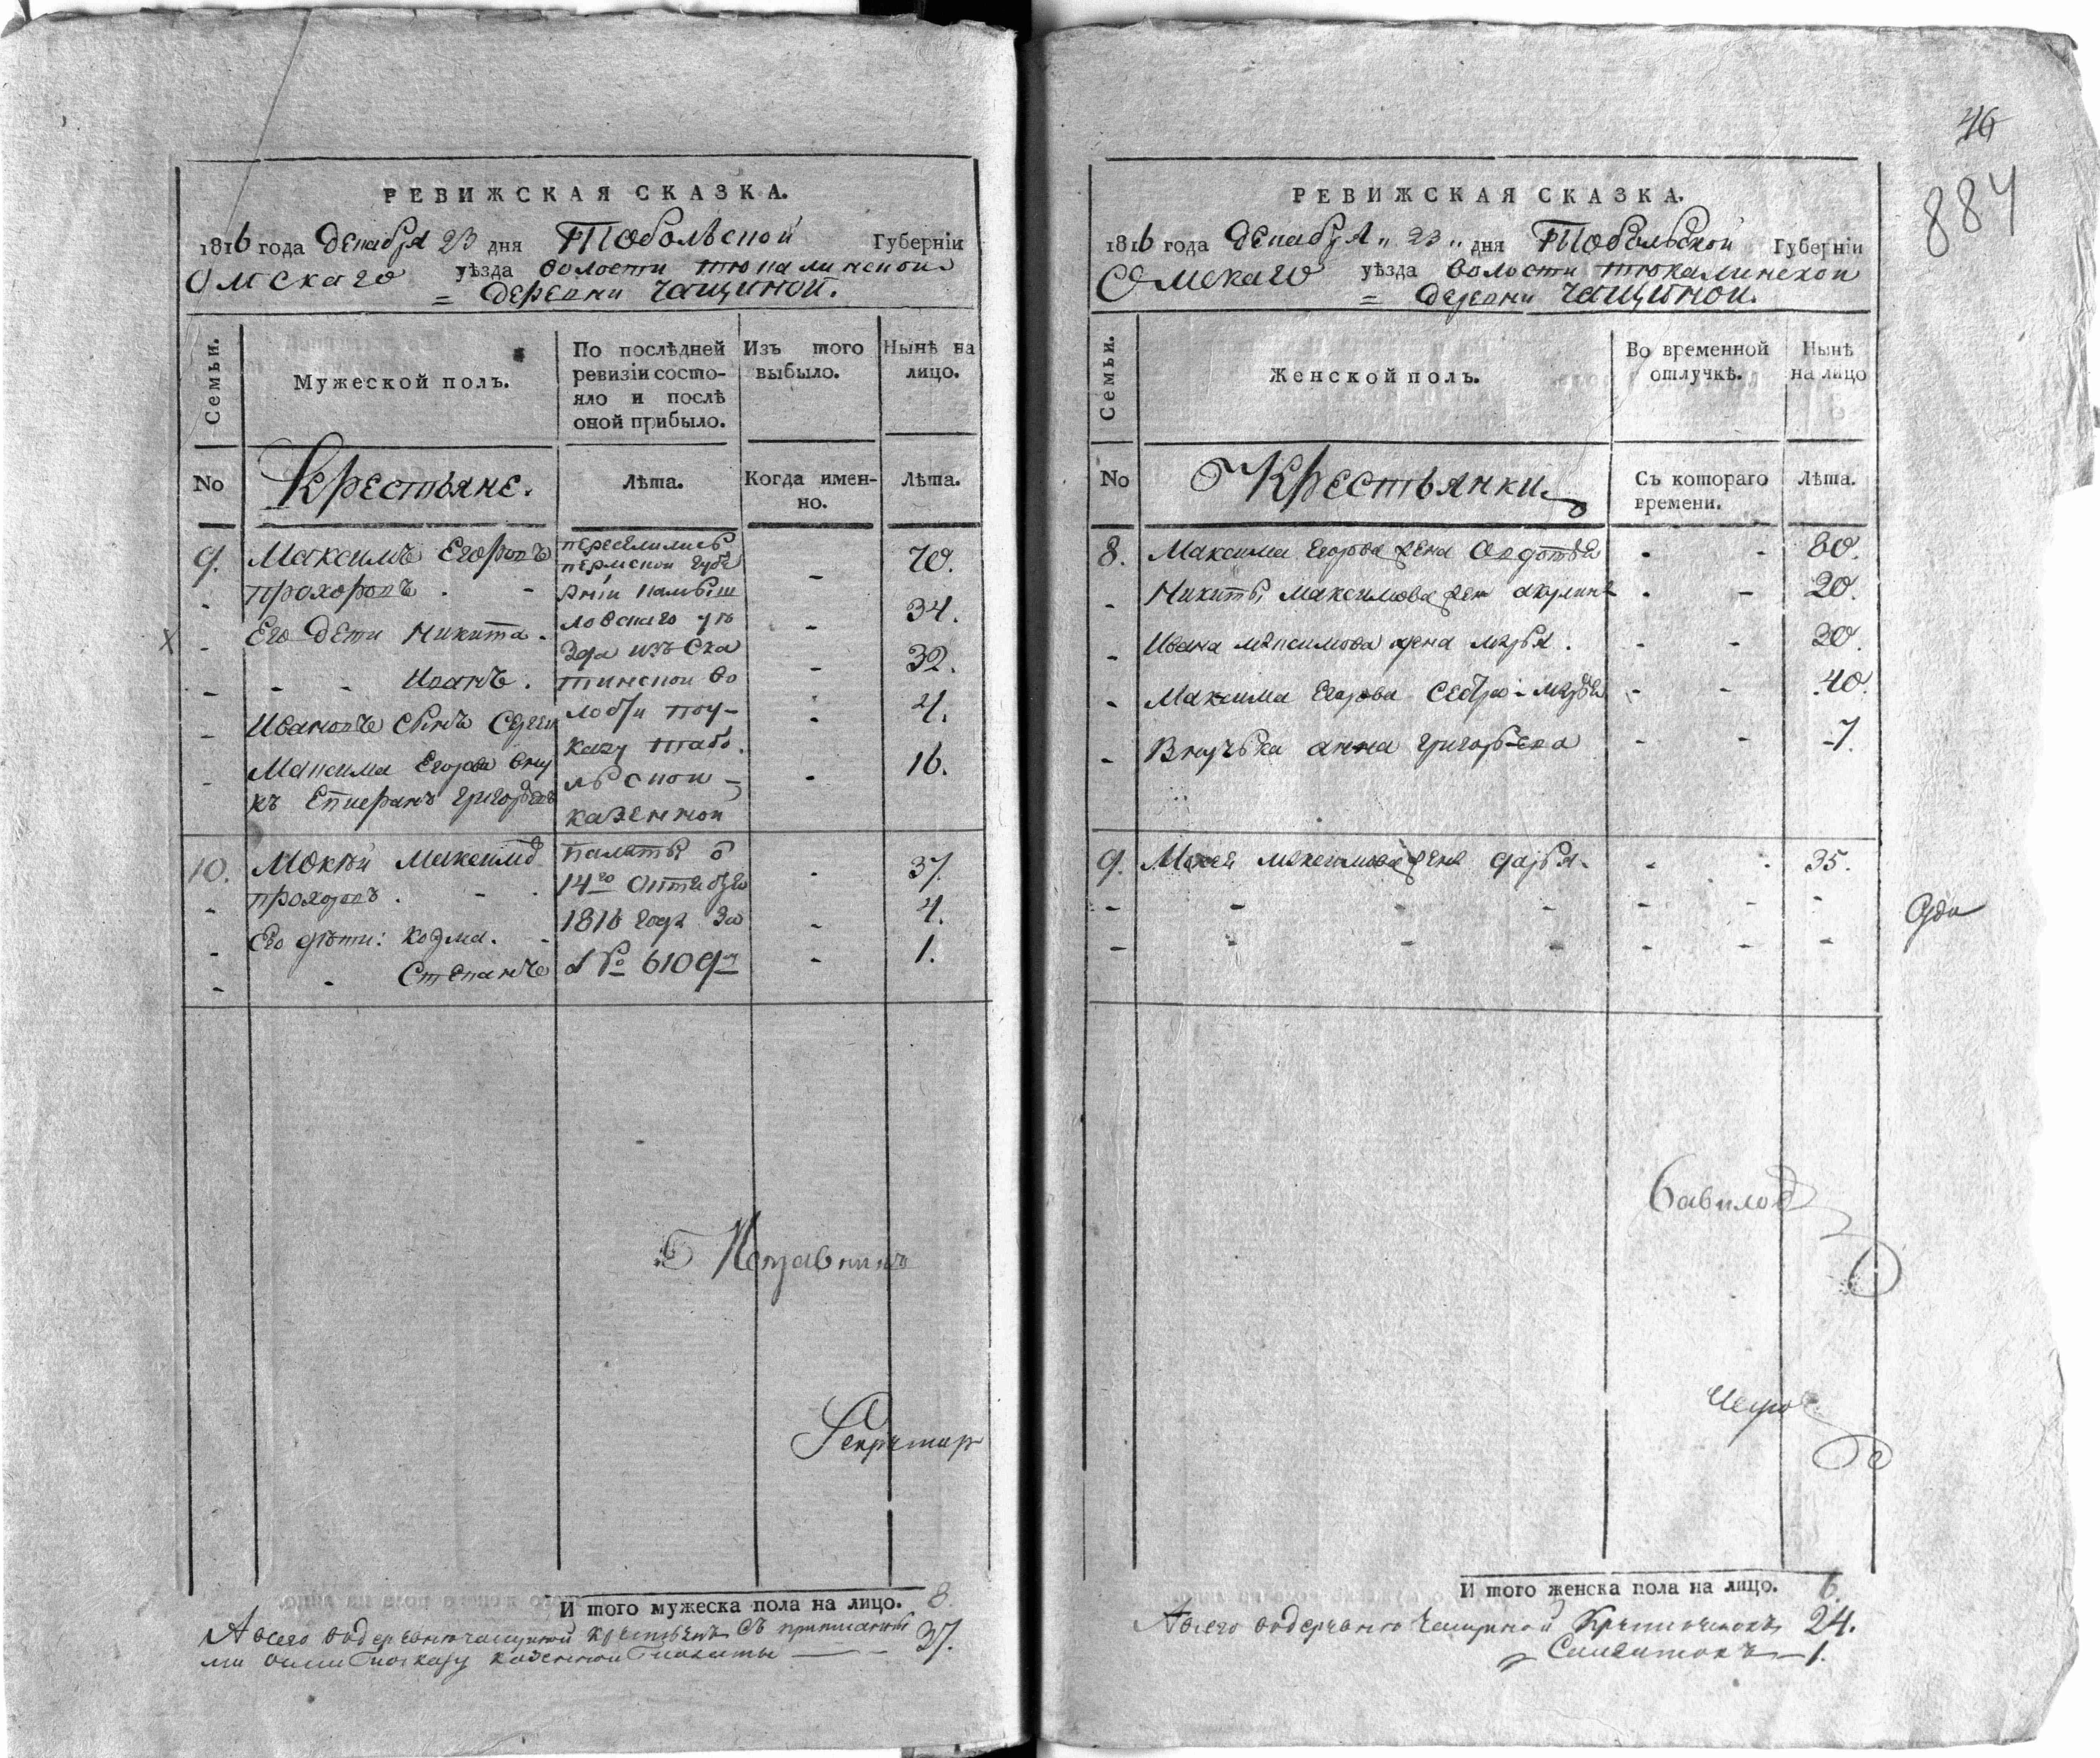 РЕВИЖСКАЯ СКАЗКА.
1816 года Декабря 23 дня Тобольской Губерніи
Омскаго уѣзда волости тюкалинской
= деревни чащиной.
Семьи.
Мужеской полъ.
По послѣдней ревизіи состо-
яло и послѣ
оной прибыло.
Изъ того выбыло.
Нынѣ на лицо.
No
Крестьяне.
Лѣта.
Когда имен-
но.
Лѣта.
9. Максимъ Егоровъ
прохоровъ . - 70.
Его дети Никита. 34.
Иванъ. 32.
Ивановъ сынъ Сергеи 4.
Максима Егорова вну
къ Епиѳанъ григорьевъ 16.
переселились
пермской губе
рніи камыш
ловскаго уѣ
зда изъ Ска
тинской во
лости по у-
казу тобо
льской
казенной
палаты
14го октября
1816 года за
No 6109м
10. Мокѣй Максимов
прохоровъ . - 37.
Его дѣти: козма. 4.
Степанъ 1.
Исправникъ
Секретар
И того мужеска пола на лицо. 8.
А всего во деревне чащиной крестьянъ съ приписанны
ми оными по указу казенной палаты — 37.
46
884
РЕВИЖСКАЯ СКАЗКА.
1816 года Декабря „ 23 „ дня Тобольской Губерніи
Омскаго уѣзда волости тюкалинской
= деревни чащиной.
Семьи.
Женской полъ.
Во временной отлучкѣ.
Нынѣ на лицо
No
Крестьянки.
Съ котораго
времени.
Лѣта.
8. Максима Егорова жена Овдотья - - 60.
Никиты Максимова жен акулина - - 20.
Ивана максимова жена марья . - - 30.
Максима Егорова сестра марья - - 40.
Внучька анна григорьева - - 7.
9. Мокея максимова жена дарья. - - 35.
Вавилов
И того женска пола на лицо. 6.
А всего во деревне чащиной Крестьянокъ 24.
1.